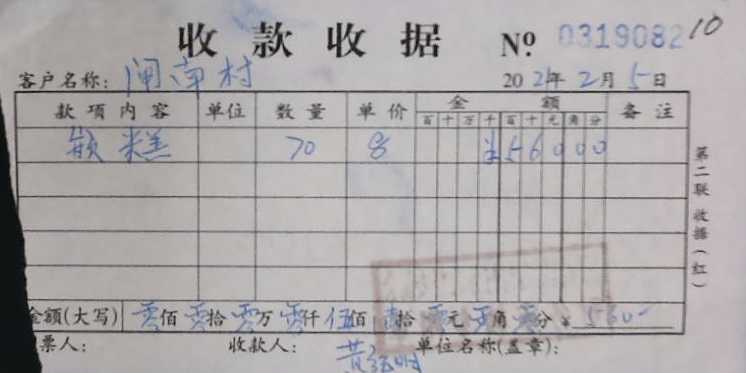 收款收据 № 0319082 10
客户名称： 闸南村 2021年2月5日
款项内容 单位 数量 单价 金额 备注
百 十 万 千 百 十 元 角 分
糕 70 8 ¥56000
第二联 收据（红）
金额(大写) 零佰零拾零万零仟伍佰 拾零元 角零分 ¥ 560-
票人： 收款人： 单位名称(盖章)：